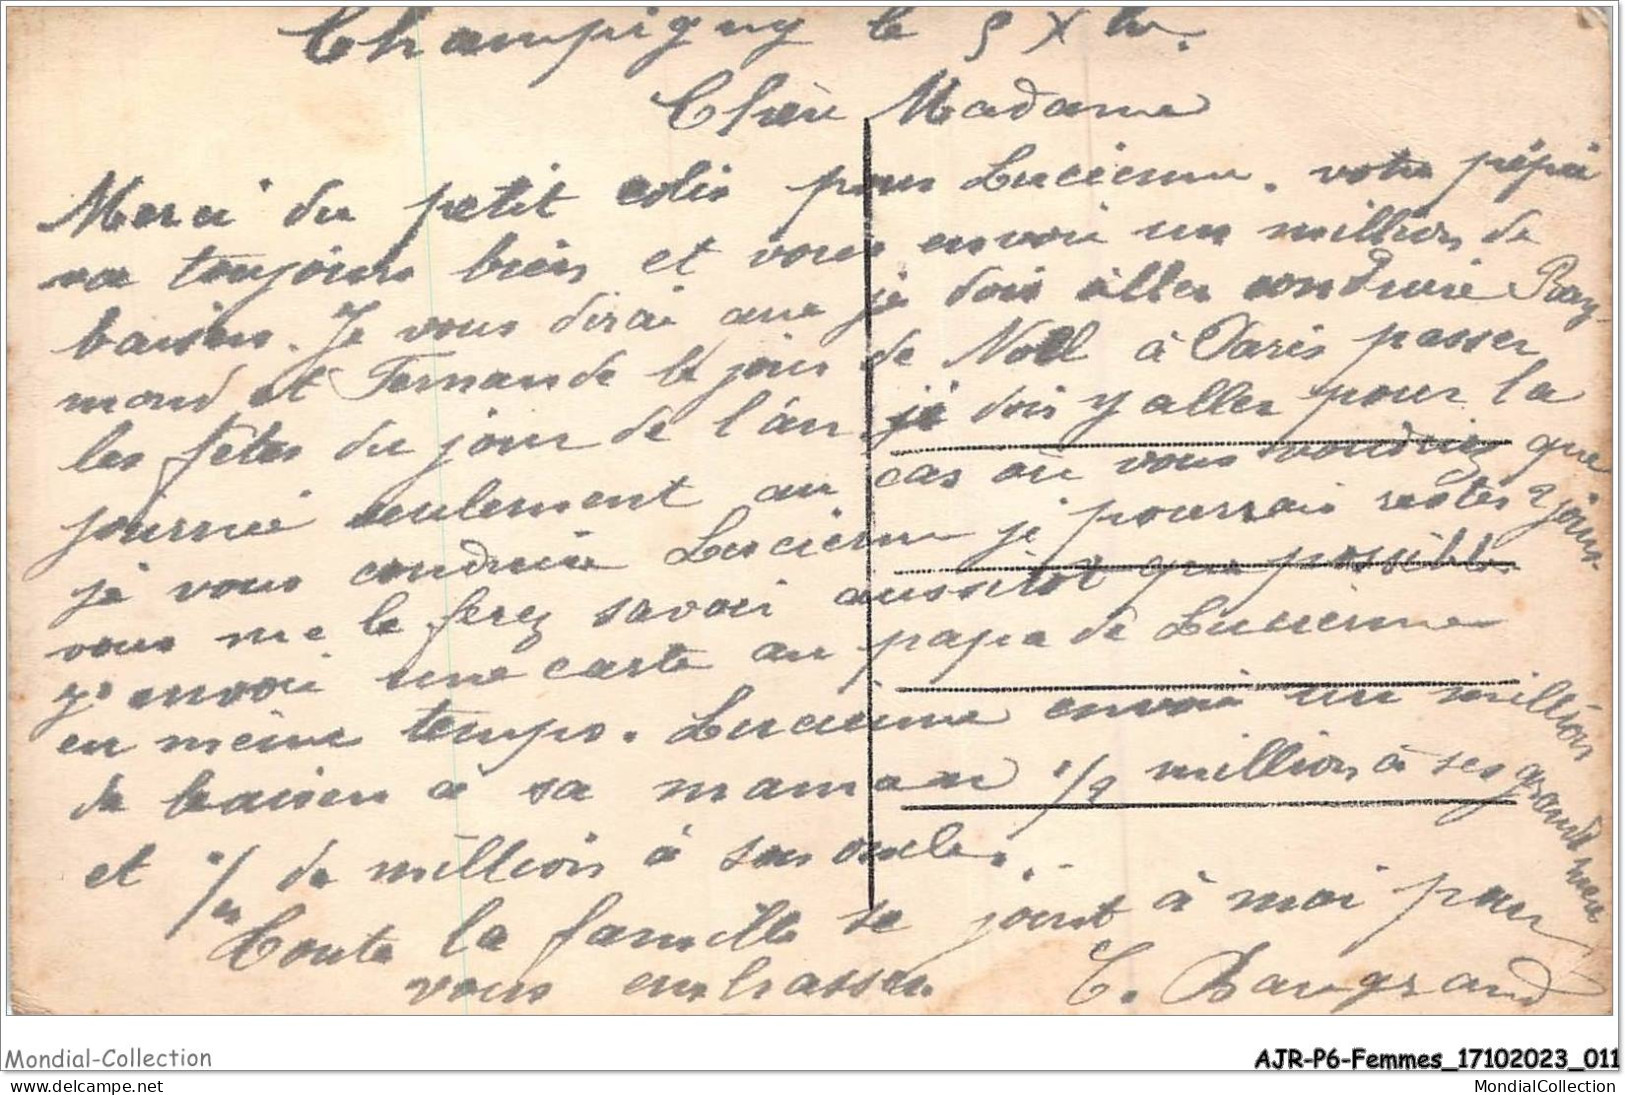 Champigny le 9 X bre.
Chère Madame
Merci du petit colis pour Lucienne. votre pépée
va toujours bien et vous envoie un million de
baisers. Je vous dirai que je dois aller conduire Ray-
mond et Fernande le jour de Noël à Paris passer
les fêtes du jour de l'an. je dois y aller pour la
journée seulement au cas où vous voudriez que
je vous conduise Lucienne je pourrais rester 2 jours.
vous me le ferez savoir aussitôt que possible
J'envoi une carte au papa de Lucienne
en même temps. Lucienne envoie un million
de baisers à sa maman 1/2 million à ses grand mère
et 1/2 de million à son oncle.
Toute la famille se joint à moi pour
vous embrasser. C. Baugrand
Mondial-Collection
AJR-P6-Femmes_17102023_011
www.delcampe.net
MondialCollection